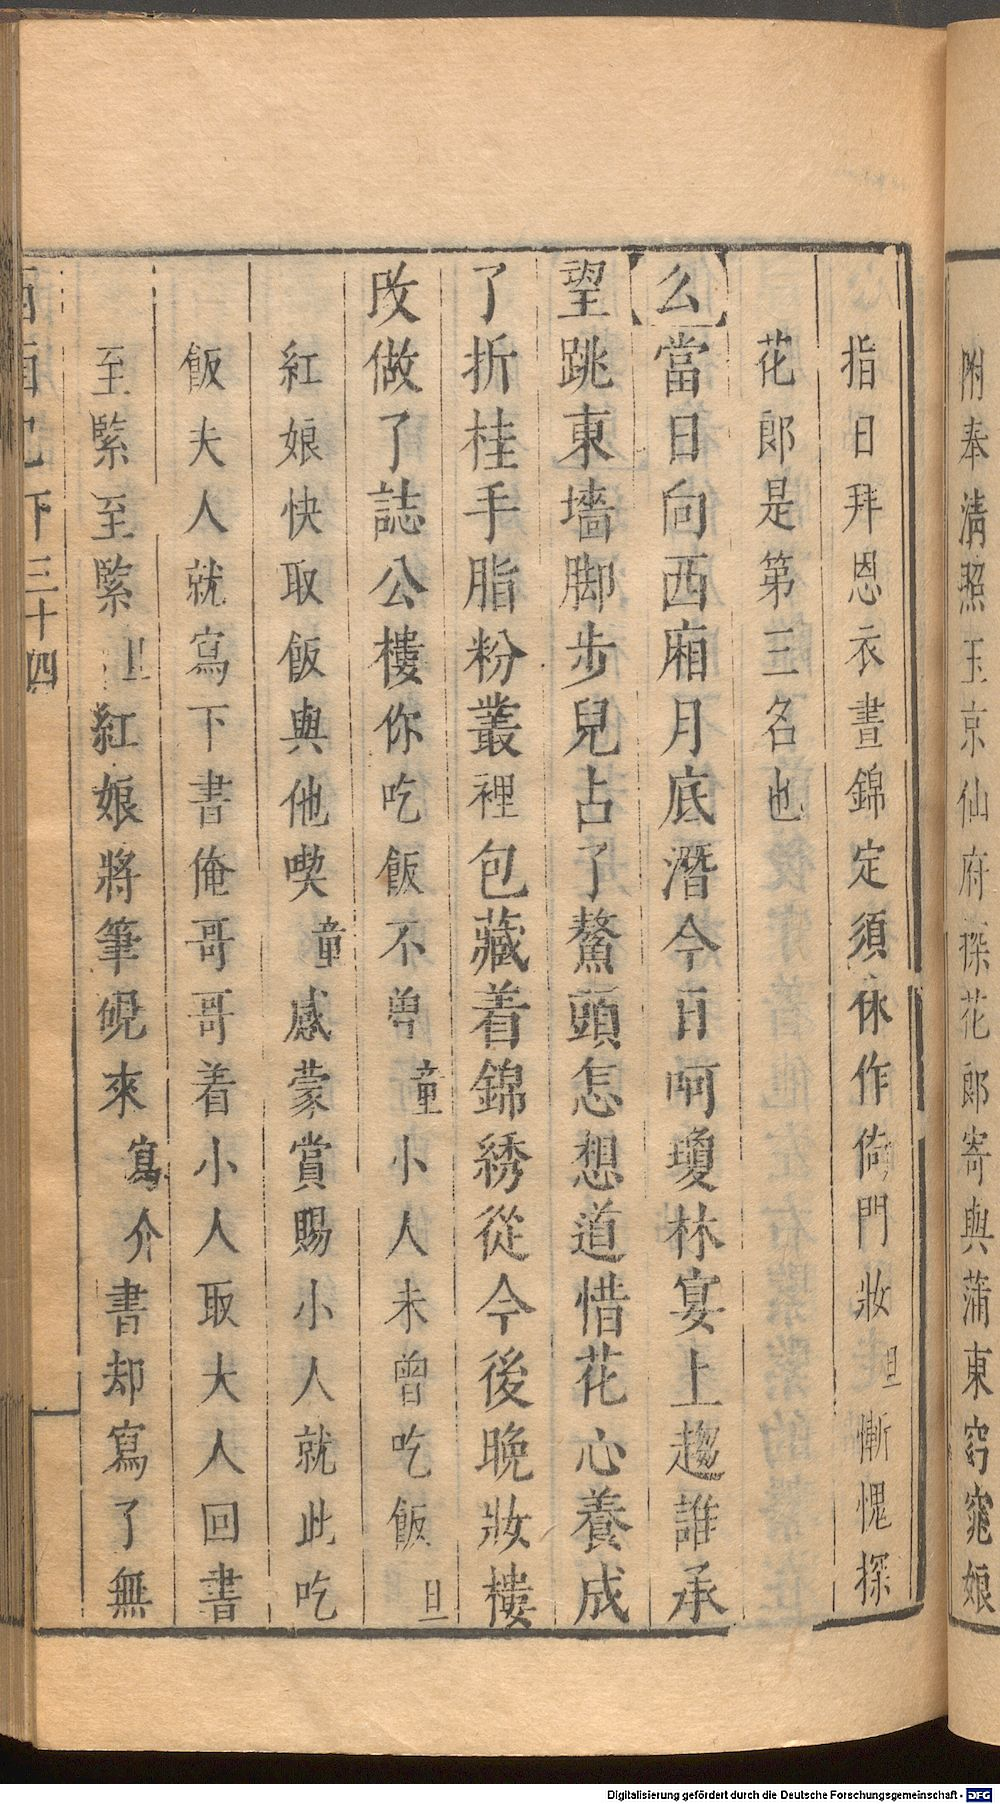 附奉淸照玉京仙府探花郎寄與蒲東窈窕娘
指日拜恩衣晝錦定須休作倚門妝旦慚愧探
花郎是第三名也
么當日向西廂月底潛今日呵瓊林宴上趨誰承
望跳東墻脚步兒占了鰲頭怎想道惜花心養成
了折桂手脂粉叢裡包藏着錦綉從今後晚妝樓
改做了誌公樓你吃飯不曾童小人未曾吃飯旦
紅娘快取飯與他喫童感蒙賞賜小人就此吃
飯夫人就寫下書俺哥哥着小人取大人回書
至緊至緊旦紅娘將筆硯來寫介書却寫了無
西廂記下三十四
Digitalisierung gefördert durch die Deutsche Forschungsgemeinschaft - DFG